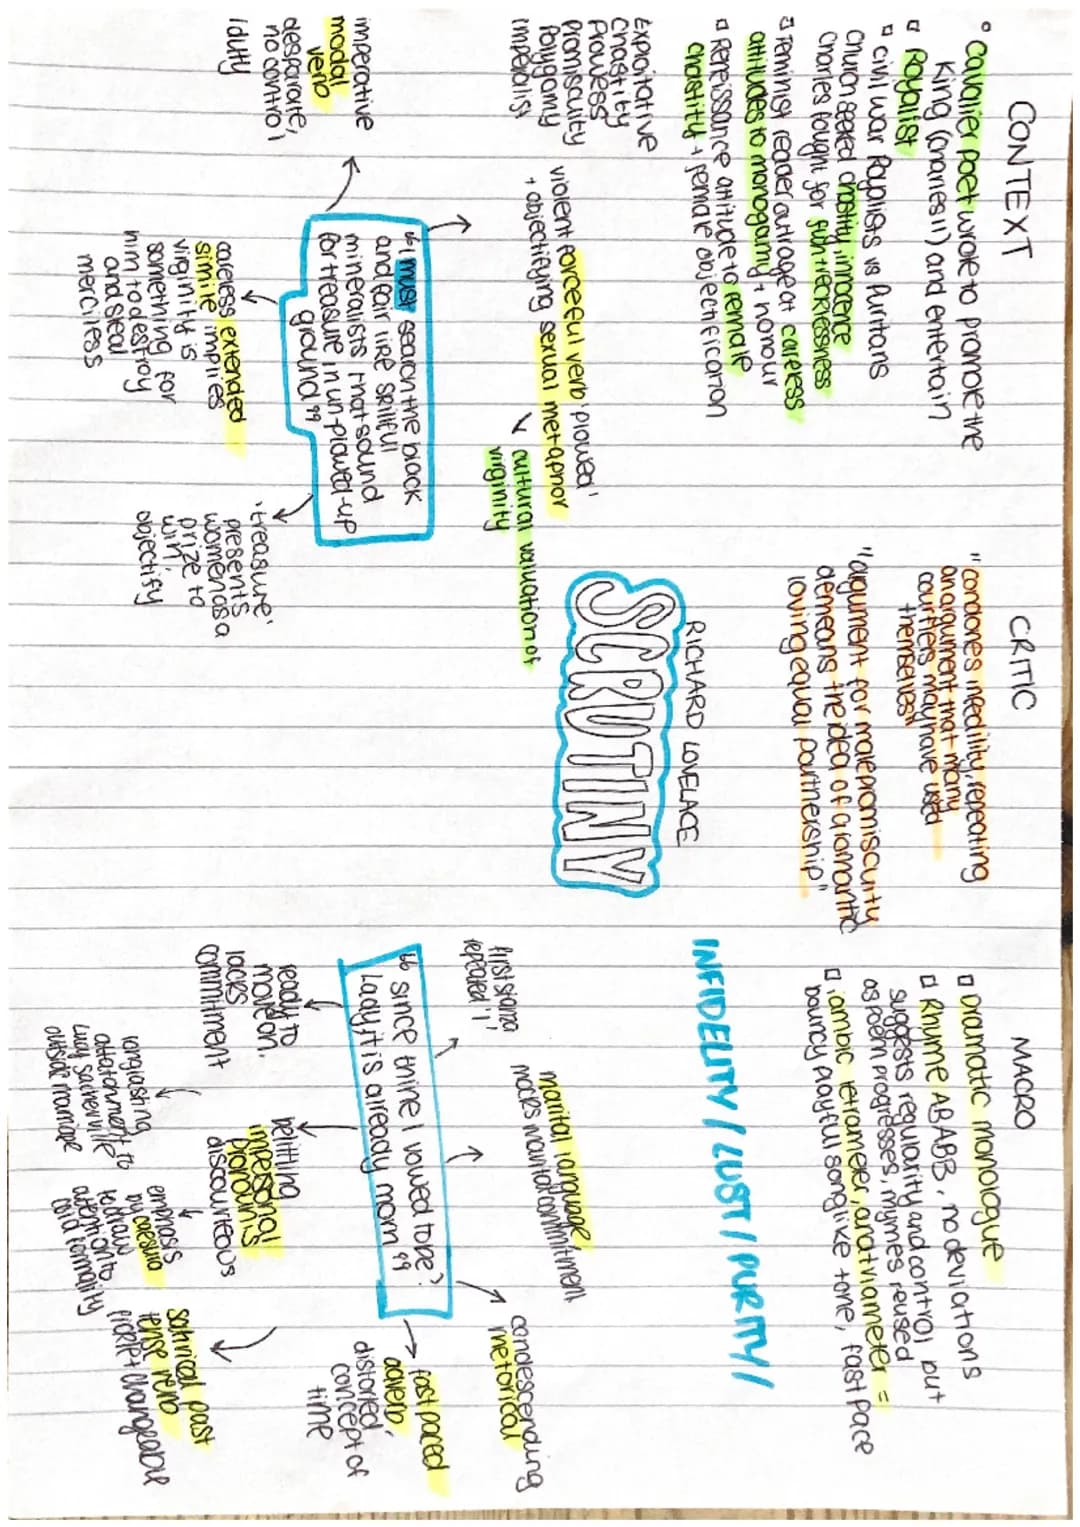 CONTEXT
° cavalier poet wrote to promote the
King (Charles II) and entertain
Royalist
civil war Royalists vs Puritans
Charles fought for
Feminist reader outrage at careless
attitudes to monogamy + honour
Reneissance attitude to female
chastity + female objectification
CRITIC
"condones
repeating
an argument that many
courtiers may have used
themselves"
"argument for male promiscuity
demeans the idea of a romantic
loving equal partnership"
MACRO
Dramatic monologue
Rhyme ABABB, no deviations
suggests regularity and control, but
as poem progresses, rhymes reused
iambic tetrameter and triameter =
bouncy playful songlike tone, fast pace
Chastity
Prowess
promiscuity
Polygamy
Imperialist
violent forceful verb 'plowed'
+ objectifying sexual metaphor
cultural valuation of
virginity
RICHARD LOVELACE
SCRUTINY
INFIDELITY / LUST / PURITY /
imperative
modal
verb
desparate,
no control
/duty
"I must search the black
and fair like skillful
mineralists that sound
for treasure in un-plowed-up
ground"
careless extended
simile implies
virginity is
something for
him to destroy
and steal
merciless
'treasure'
presents
women as a
prize to
win,
objectify
first stanza
repeated 'I'
marital language,
mocks marital commitment
condescending
rhetorical
"since thine I vowed to be?
Lady, it is already morn"
ready to
move on,
lacks
commitment
belittling
impersonal
pronouns
discourteous
fast paced
adverb
distorted
concept of
time
longlasting
attatchment to
Lucy Sacheville
outside marriage
emphasis
by caesura
to draw
attention to
cold formality
satirical past
tense verb
fickle + changeable